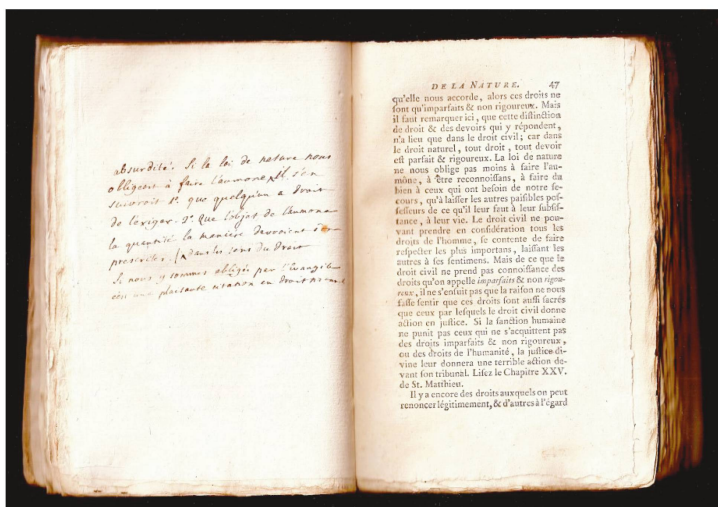 absurdité. Si la loi de nature nous
obligeoit à faire l'aumone, il s'en
suivroit 1º. que quelqu'un a droit
de l'exiger. 2º. Que l'objet de l'aumone
la quantité la manière devroient être
prescrites. dans les loix du Droit
Si nous y sommes obligés par l'évangile
c'est une plaisante citation en droit naturel
DE LA NATURE. 47
qu'elle nous accorde, alors ces droits ne
ſont qu'imparfaits & non rigoureux. Mais
il faut remarquer ici, que cette diſtinction
de droit & des devoirs qui y répondent,
n'a lieu que dans le droit civil; car dans
le droit naturel, tout droit, tout devoir
eſt parfait & rigoureux. La loi de nature
ne nous oblige pas moins à faire l'au-
mône, à être reconnoiſſans, à faire du
bien à ceux qui ont beſoin de notre ſe-
cours, qu'à laiſſer les autres paiſibles poſ-
ſeſſeurs de ce qu'il leur faut à leur ſubſiſ-
tance, à leur vie. Le droit civil ne pou-
vant prendre en conſidération tous les
droits de l'homme, ſe contente de faire
reſpecter les plus importans, laiſſant les
autres à ſes ſentimens. Mais de ce que le
droit civil ne prend pas connoiſſance des
droits qu'on appelle imparfaits & non rigou-
reux, il ne s'enſuit pas que la raiſon ne nous
faſſe ſentir que ces droits ſont auſſi ſacrés
que ceux par leſquels le droit civil donne
action en juſtice. Si la ſanction humaine
ne punit pas ceux qui ne s'acquittent pas
des droits imparfaits & non rigoureux,
ou des droits de l'humanité, la juſtice di-
vine leur donnera une terrible action de-
vant ſon tribunal. Liſez le Chapitre XXV.
de St. Matthieu.
Il y a encore des droits auxquels on peut
renoncer légitimement, & d'autres à l'égard